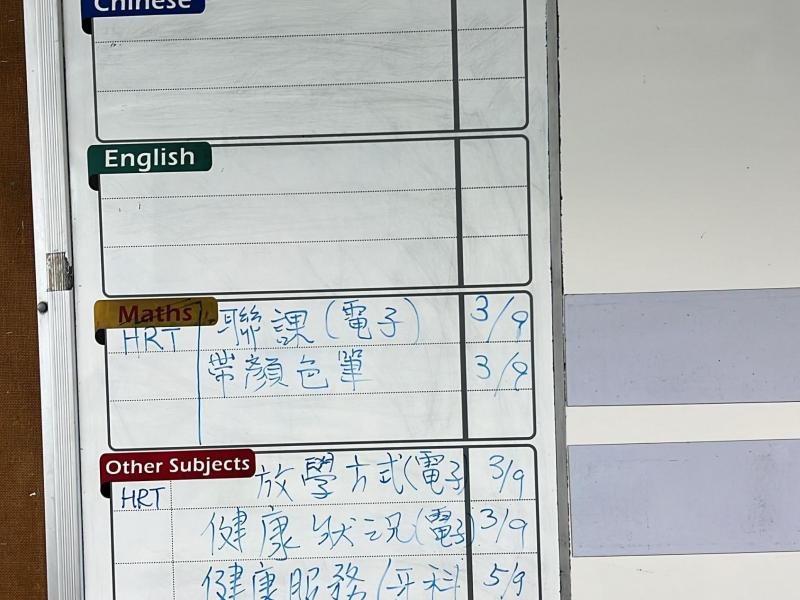 Chinese
English
Maths
HRT 聯課(電子) 3/9
帶顏色單 3/9
Other Subjects
HRT 放學方式(電子 3/9
健康狀況(電子) 3/9
健康服務/牙科 5/9